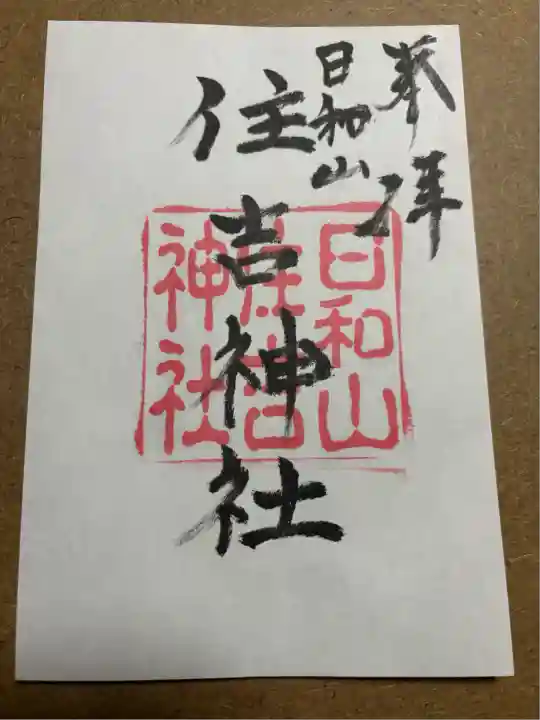 奉拝
日和山
住吉神社
日和山
住吉
神社